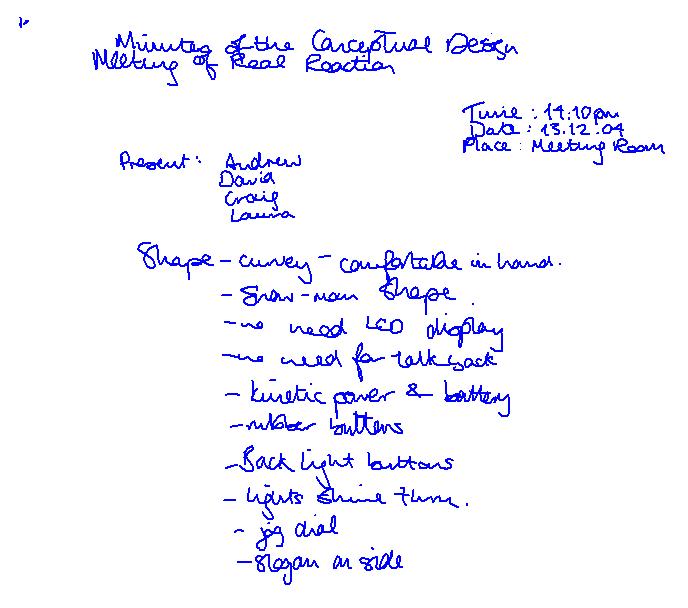 Minutes of the Conceptual Design
Meeting of Real Reaction
Time : 14:10pm
Date : 13.12.04
Place : Meeting Room
Present : Andrew
David
Craig
Laura
Shape - curvey - comfortable in hand.
- Snow-man shape.
- no need LCD display
- no need for talk back
- kinetic power & battery
- rubber buttons
- Back light buttons
- lights shine thru.
- jog dial
- slogan on side